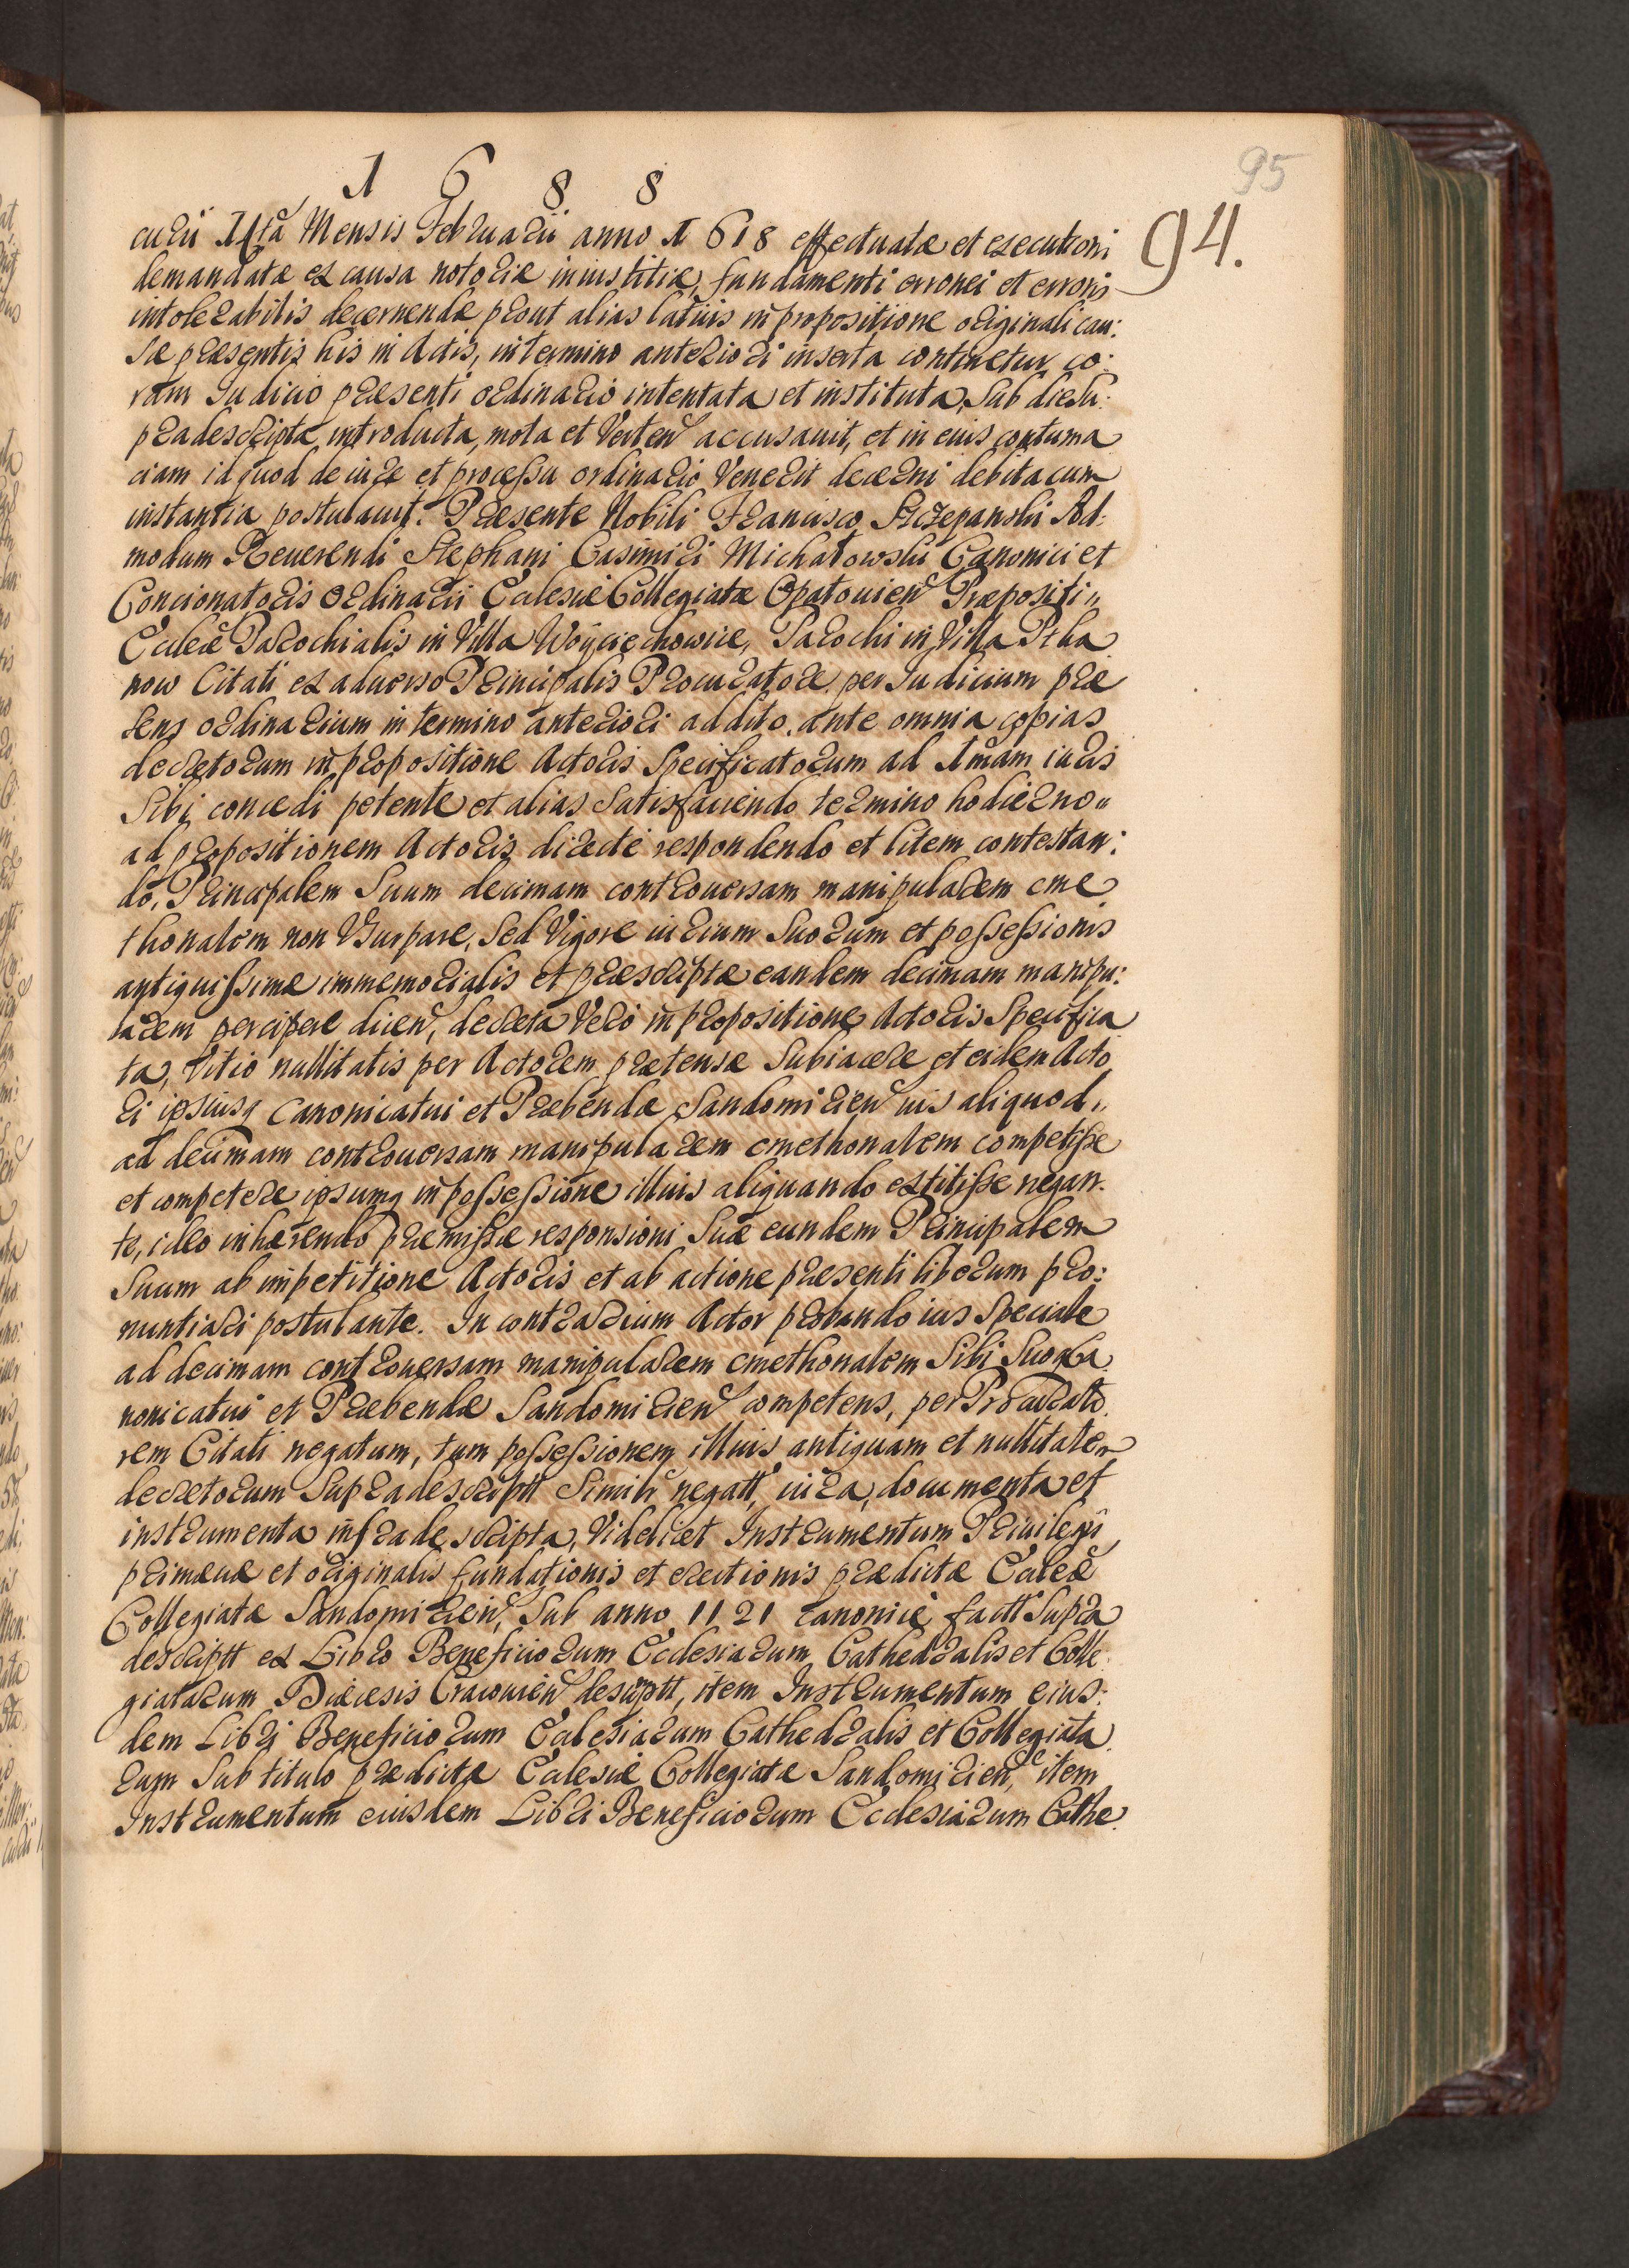 95
1 6 8 8
94.
curii Mensis Februarii anno 1618 effectuatæ et executioni
demandatæ ex causa notoriæ iniustitiæ, fundamenti erronei et erroris
intolerabilis decernendæ prout alias latius in propositione originali cau:
sæ præsentis his in Actis, in termino anteriori inserta continetur, co:
ram Iudicio præsenti ordinario intentata et instituta, sub die su:
pradescripta introducta, mota et Verten accusauit, et in eius contuma
ciam id quod de iure et processu ordinario Venerit decerni debita cum
instantia postulauit. Præsente Nobili Francisco Szczepanski Ad:
modum Reuerendi Stephani Casimiri Michałowski Canonici et
Concionatoris Ordinarii Ecclesiæ Collegiatæ Opatouien Præpositi
Eccleæ Parochialis in Villa Woyciechowice, Parochi in Villa Ptka
now Citati ex aduerso Principalis Procuratore, per Iudicium præ
sens ordinarium in termino anteriori addito, ante omnia copias
decretorum in propositione Actoris Specificatorum ad 1mam iuris
Sibi concedi petente et alias Satisfaciendo termino hodierno
ad propositionem Actoris directe respondendo et litem contestan:
do, Principalem Suum decimam controuersam manipularem cme
thonalem non Vsurpare, Sed Vigore iurium Suorum et possessionis
antiquissimæ immemorialis et præscriptæ eandem decimam manipu:
larem percipere dicen, decreta Vero in propositione Actoris Specifica
ta, Vitio nullitatis per Actorem prætensæ Subiacere et eidem Acto
ri ipsiusq Canonicatui et Præbendæ Sandomirien ius aliquod
ad decimam controuersam manipularem cmethonalem competisse
et competere ipsumq in possessione illius aliquando extitisse negan:
te, ideo inhærendo præmissæ responsioni Suæ eundem Principalem
Suum ab impetitione Actoris et ab actione præsenti liberum pro:
nuntiari postulante. In contrarium Actor probando ius Speciale
ad decimam controuersam manipularem cmethonalem Sibi Suoq Ca
nonicatui et Præbendæ Sandomirien competens, per Procurato
rem Citati negatum, tum possessionem illius antiquam et nullitatem
decretorum Supradescriptt Simil negatt, iura, documenta et
instrumenta infradescripta, Videlicet Instrumentum Priuilegii
primæuæ et originalis fundationis et erectionis prædictæ Eccleæ
Collegiatæ Sandomirien, Sub anno 1121 canonice factt Supra
descriptt ex Libro Beneficiorum Ecclesiarum Cathedralis et Colle
giatarum Diæcesis Cracouien descriptt, item Instrumentum eius:
dem Libri Beneficiorum Ecclesiarum Cathedralis et Collegiata
rum Sub titulo prædictæ Ecclesiæ Collegiatæ Sandomirien, item
Instrumentum eiusdem Libri Beneficiorum Ecclesiarum Cathe